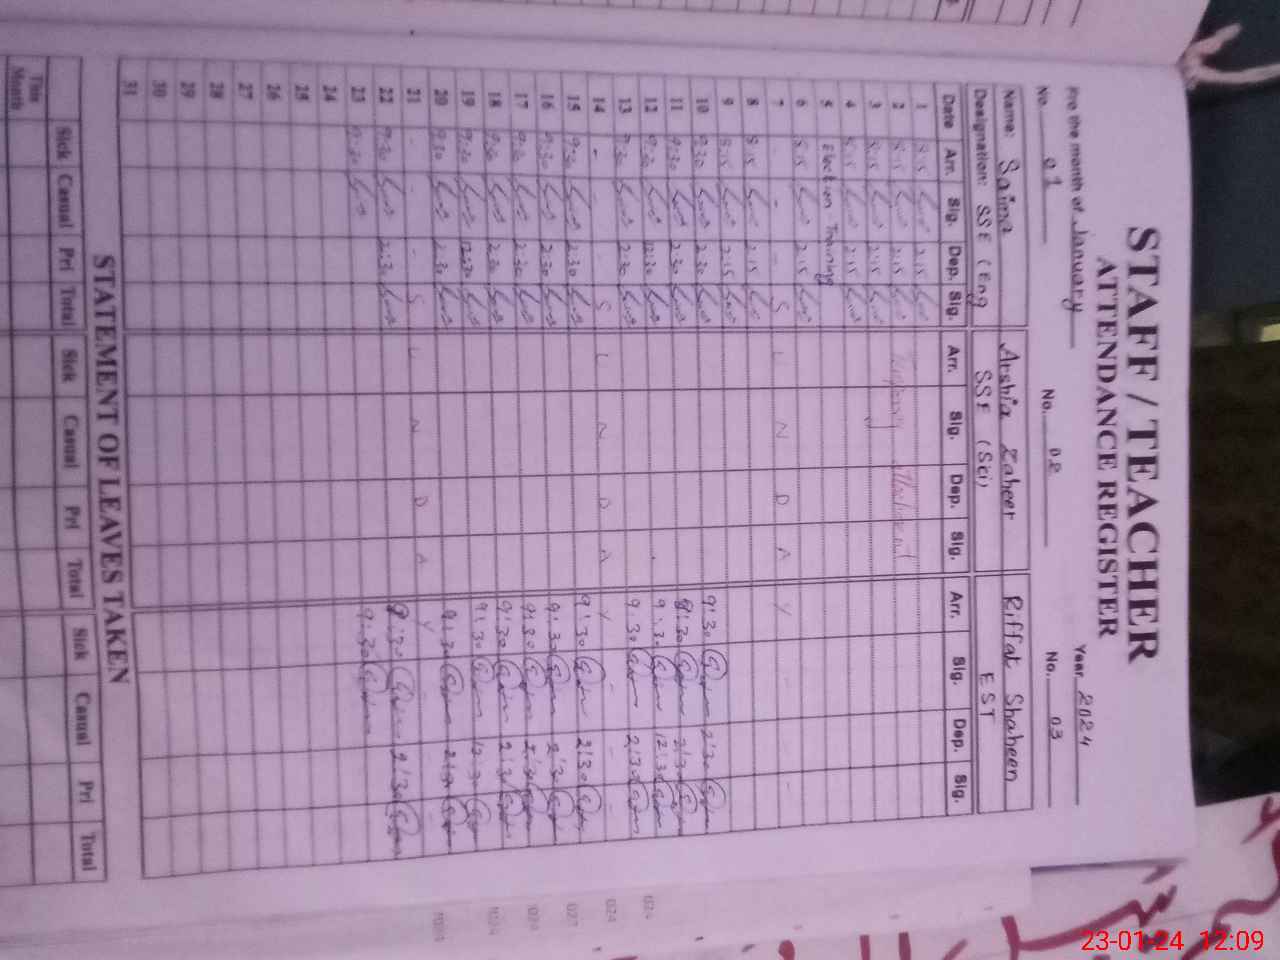 STAFF / TEACHER
ATTENDANCE REGISTER
For the month of January Year 2024
No. 01 No. 02 No. 03
Name: Saima Arshia Zaheer Riffat Shaheen
Designation: SSE (Eng SSE (Sci) EST
Date Arr. Sig. Dep. Sig. Arr. Sig. Dep. Sig. Arr. Sig. Dep. Sig.
1 8:15 2:15
2 8:15 2:15
3 8:15 2:15
4 8:15 2:15
5 Election Training
6 8:15 2:15
7 - - - S U N D A Y - - -
8 8:15 2:15
9 8:15 2:15
10 9:30 2:30 9:30 2:30
11 9:30 2:30 9:30 2:30
12 9:30 12:30 9:30 12:30
13 9:30 2:30 9:30 2:30
14 - - - S U N D A Y - - -
15 9:30 2:30 9:30 2:30
16 9:30 2:30 9:30 2:30
17 9:30 2:30 9:30 2:30
18 9:30 2:30 9:30 2:30
19 9:30 12:30 9:30 12:30
20 9:30 2:30 9:30 2:30
21 - - - S U N D A Y
22 9:30 2:30 9:30 2:30
23 9:30 9:30
24
25
26
27
28
29
30
31
STATEMENT OF LEAVES TAKEN
Sick Casual Pri Total Sick Casual Pri Total Sick Casual Pri Total
This Month
23-01-24 12:09